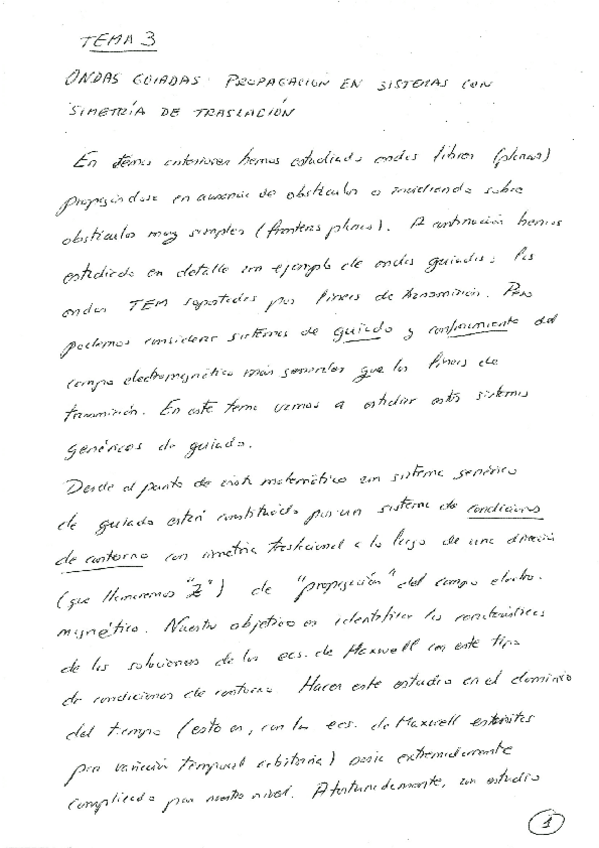 TEMA 3
ONDAS GUIADAS: PROPAGACION EN SISTEMAS CON
SIMETRÍA DE TRASLACIÓN
En temas anteriores hemos estudiado ondas libres (planas)
propagándose en ausencia de obstáculos o incidiendo sobre
obstáculos muy simples (fronteras planas). A continuación hemos
estudiado en detalle un ejemplo de ondas guiadas: las
ondas TEM soportadas por líneas de transmisión. Pero
podemos considerar sistemas de guiado y confinamiento del
campo electromagnético más generales que las líneas de
transmisión. En este tema vamos a estudiar estos sistemas
genéricos de guiado.
Desde el punto de vista matemático un sistema genérico
de guiado estará constituido por un sistema de condiciones
de contorno con simetría traslacional a lo largo de una dirección
(que llamaremos "Z") de "propagación" del campo electro-
magnético. Nuestro objetivo es identificar las características
de las soluciones de las ecs. de Maxwell con este tipo
de condiciones de contorno. Hacer este estudio en el dominio
del tiempo (esto es, con las ecs. de Maxwell existentes
para variación temporal arbitraria) sería extremadamente
complicado para nuestro nivel. Afortunadamente, un estudio
1